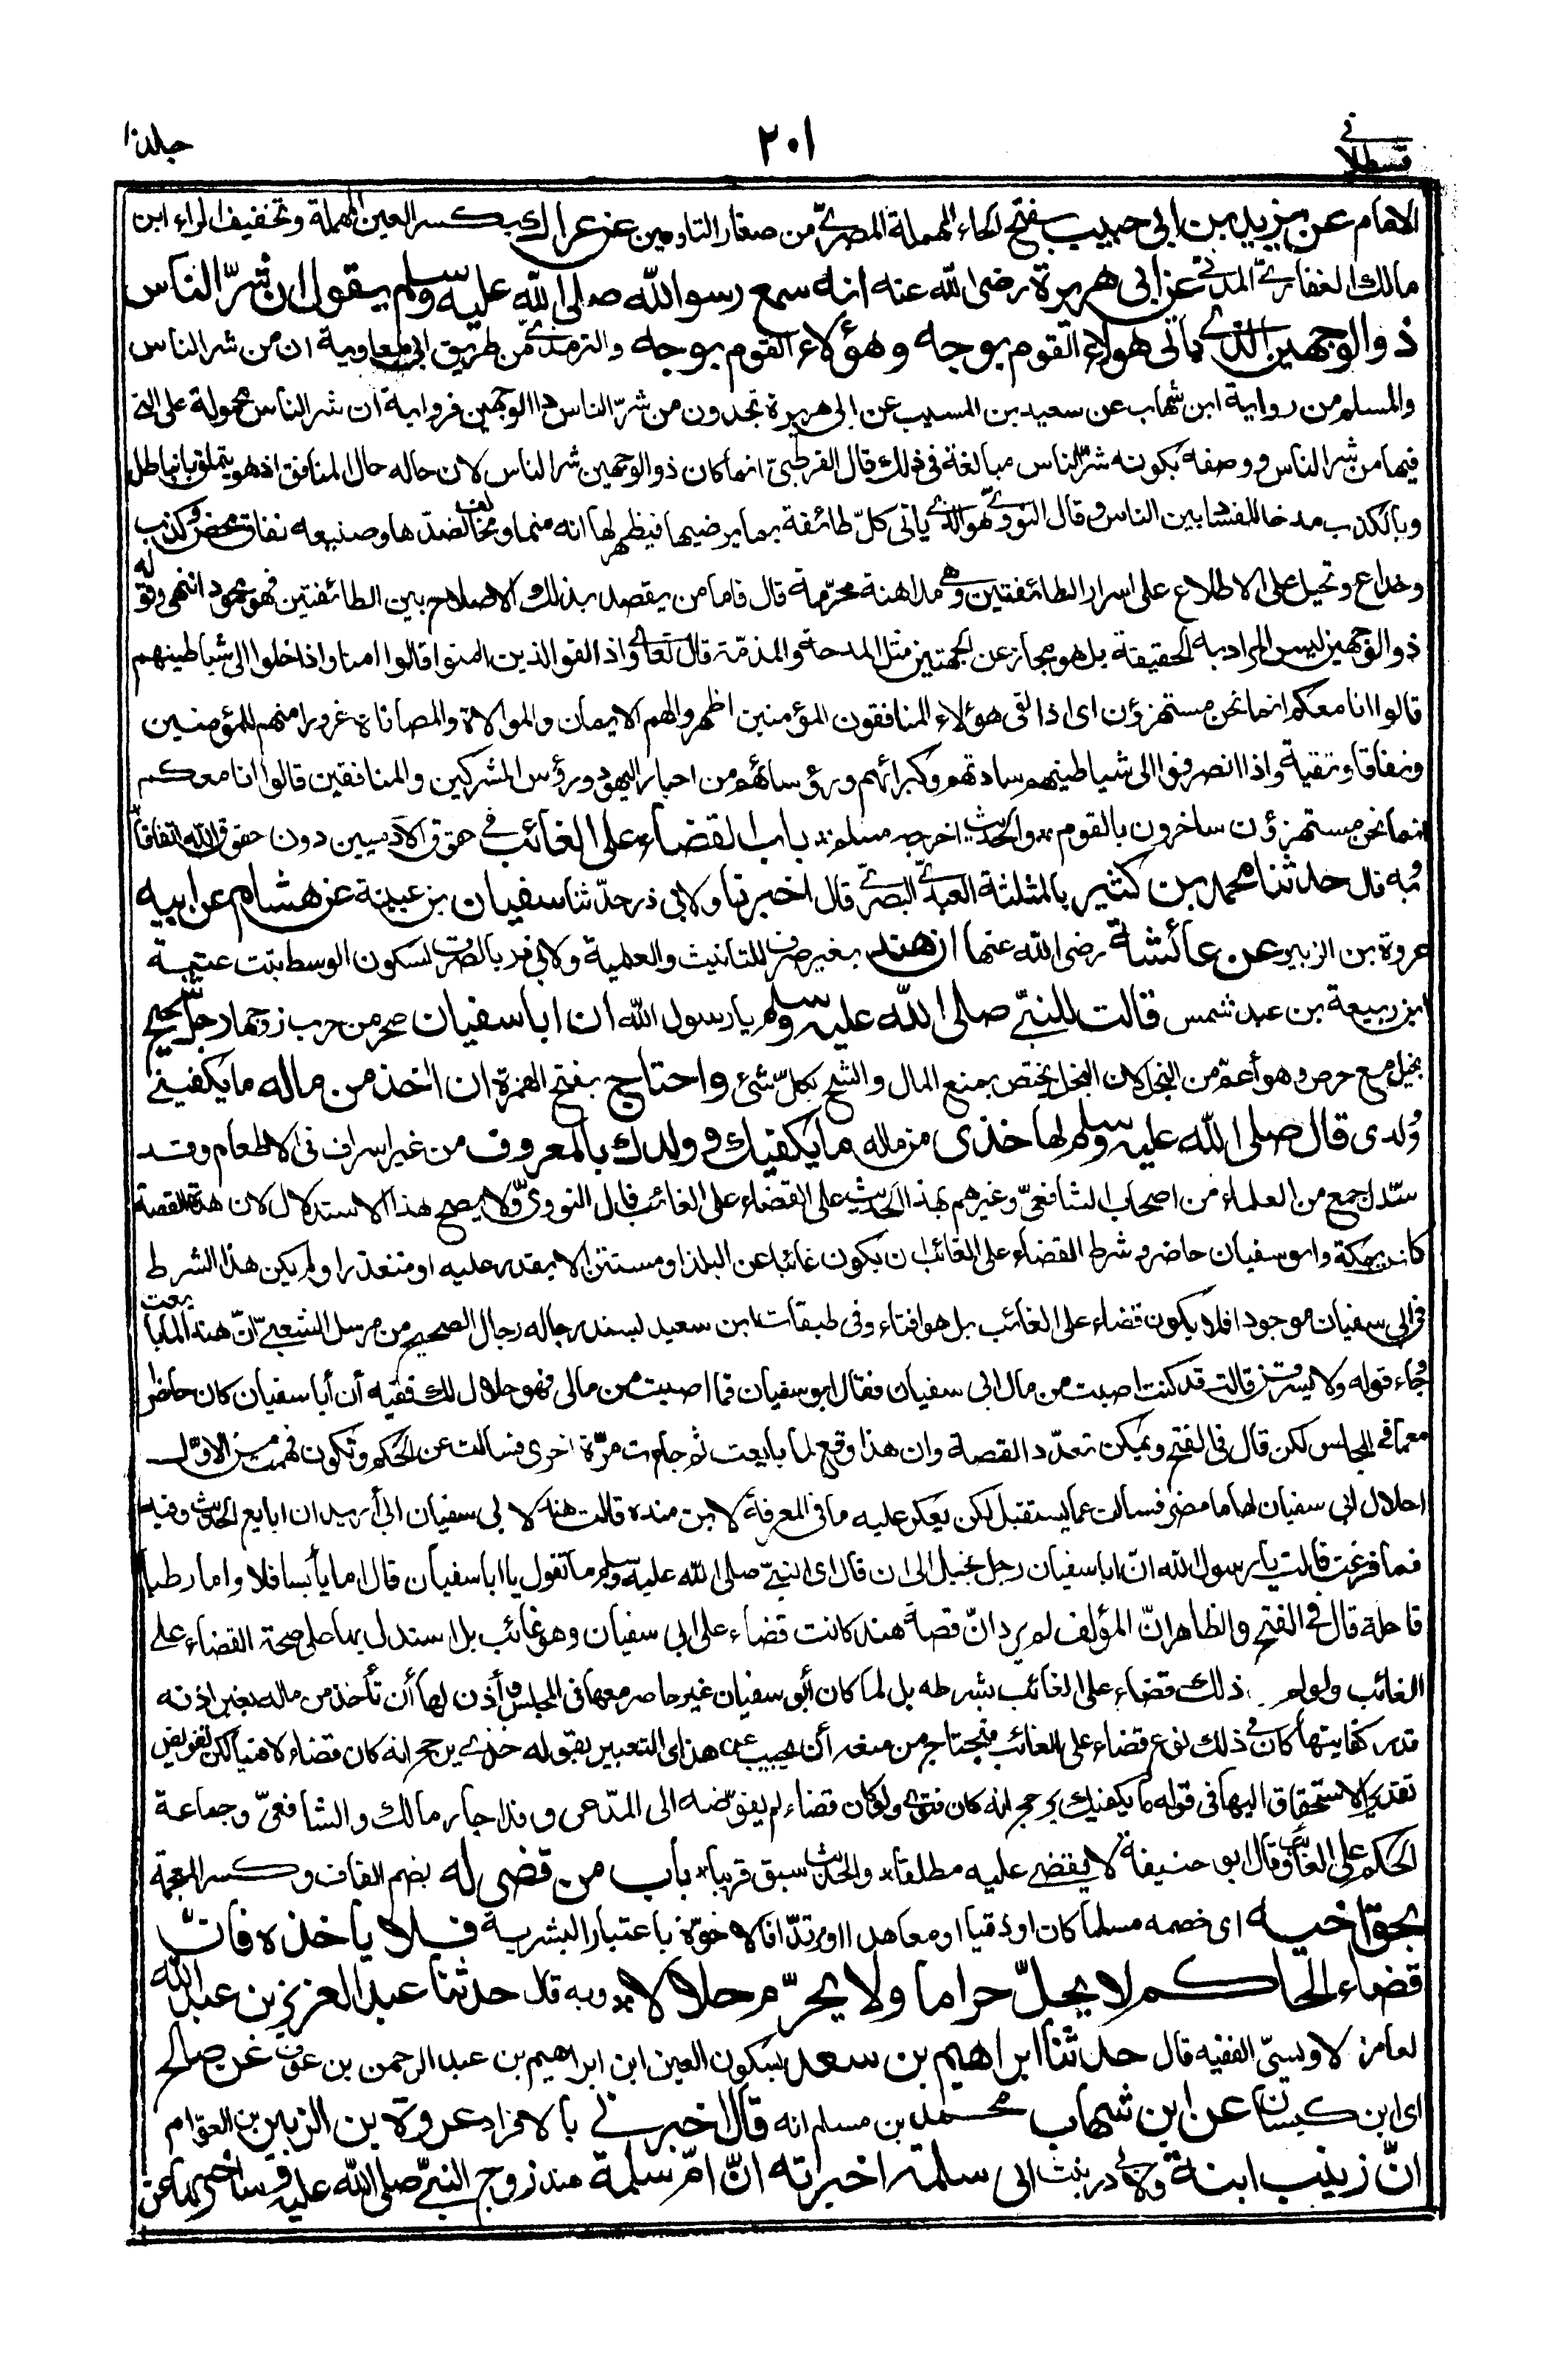 قسطلانی ٢٠١ جلد١٠
الامام عن يزيد بن ابى حبيب بفتح الحاء المهملة المصرىّ من صغار التابعين عن عراك بكسر العين المهملة وتخفيف الراء ابن
مالك الغفارىّ المدنى عن ابى هريرة رضى الله عنه انه سمع رسول الله صلى الله عليه وسلم يقول ان شرّ الناس
ذو الوجهين الذى ياتى هولاء القوم بوجه وهؤلاء القوم بوجه والترمذى من طريق ابى معاوية ان من شر الناس
والمسلم من رواية ابن شهاب عن سعيد بن المسيب عن ابى هريرة تجدون من شرّ الناس ذا الوجهين فرواية ان شر الناس محمولة على التى
فيها من شر الناس ووصفه بكونه شرّ الناس مبالغة فى ذلك قال القرطبىّ انما كان ذو الوجهين شر الناس لان حاله حال المنافق اذ هو يتملق بالباطل
وبالكذب مدخل للفساد بين الناس وقال النووىّ هو الذى ياتى كلّ طائفة بما يرضيها فيظهر لها انه منها ومخالف لضدّها وصنيعه نفاق محض وكذب
وخداع وتحيل على الاطلاع على اسرار الطائفتين وهى مداهنة محرّمة قال فاما من يقصد بذلك الاصلاح بين الطائفتين فهو محمود انتهى وقوله
ذو الوجهين ليس المراد به الحقيقة بل هو مجاز عن الجهتين مثل المدحة والمذمّة قال تعالى واذا لقوا الذين امنوا قالوا امنا واذا خلوا الى شياطينهم
قالوا انا معكم انما نحن مستهزؤن اى اذا لقى هؤلاء المنافقون المؤمنين اظهروا لهم الايمان والموالاة والمصافاة غرورا منهم للمؤمنين
ونفاقا وتقية واذا انصرفوا الى شياطينهم سادتهم وكبرائهم ورؤسائهم من احبار اليهود ورؤس المشركين والمنافقين قالوا انا معكم
انما نحن مستهزؤن ساخرون بالقوم والحديث اخرجه مسلم باب القضاء على الغائب فى حقوق الآدميين دون حقوق الله اتفاقا
وبه قال حدثنا محمد بن كثير بالمثلثة العبدىّ البصرىّ قال اخبرنا ولابى ذر حدّثنا سفيان بن عيينة عن هشام عن ابيه
عروة بن الزبير عن عائشة رضى الله عنها ان هند بغير صرف للتانيث والعلمية ولابى ذر بالصرف لسكون الوسط بنت عتبة
ابن ربيعة بن عبد شمس قالت للنبىّ صلى الله عليه وسلم يا رسول الله ان ابا سفيان صخر من حرب زوجها رجل شحيح
بخيل مع حرص وهو أعمّ من البخل لان البخل يختص بمنع المال والشح بكلّ شئ واحتاج بفتح الهمزة ان اخذ من ماله ما يكفينى
وُلدى قال صلى الله عليه وسلم لها خذى من ماله ما يكفيك وولدك بالمعروف من غير اسراف فى الاطعام وقد
ستدل جمع من العلماء من اصحاب الشافعىّ وغيرهم بهذا الحديث على القضاء على الغائب قال النووىّ ولا يصح هذا الاستدلال لان هذه القصة
كانت بمكة وابو سفيان حاضر وشرط القضاء على الغائب ان يكون غائبا عن البلد او مستترا لا يقدر عليه او متعذرا ولم يكن هذا الشرط
فى ابى سفيان موجودا فلا يكون قضاء على الغائب بل هو افتاء وفى طبقات ابن سعيد بسند رجاله رجال الصحيح من مرسل الشعبىّ انّ هند لما بايعت
وجاء قوله ولا يسرقن قالت قد كنت اصبت من مال ابى سفيان فقال ابو سفيان فما اصبت من مالى فهو حلال لك ففيه أن أبا سفيان كان حاضر
معها فى المجلس لكن قال فى الفتح ويمكن تعدّد القصة وان هذا وقع لما بايعت ثم جاءت مرّة اخرى فسالت عن الحكم وتكون فهمت من الاوّل
احلال ابى سفيان لها ما مضى فسالت عما يستقبل لكن يعكر عليه ما فى المعرفة لابن منده قالت هند لابى سفيان انى أريد ان ابايع الحديث وفيه
فلما فرغت قالت يا رسول الله انّ ابا سفيان رجل بخيل الى ان قال اى النبىّ صلى الله عليه وسلم ما تقول يا ابا سفيان قال اما يأبسا فلا واما رطبا
فاحلة قال فى الفتح والظاهر انّ المؤلف لم يرد انّ قصة هند كانت قضاء على ابى سفيان وهو غائب بل استدل بها على صحة القضاء على
الغائب ولو لم ذلك قضاء على الغائب بشرطه بل لما كان أبو سفيان غير حاصر معها فى المجلس وأذن لها أن تأخذ من ماله بغير اذنه
قدر كفايتها كان فى ذلك نوع قضاء على الغائب فيحتاج من منعه أن يجيب عن هذا اى التعبير بقوله خذى يرجح انه كان قضاء لا فتيا لكن تفويض
تقدير الاستحقاق اليها فى قوله ما يكفيك يرجح انه كان فتوى ولو كان قضاء لم يفوّضه الى المدّعى وقد اجاز مالك والشافعىّ وجماعة
الحكم على الغائب وقال ابو حنيفة لا يقضى عليه مطلقا والحديث سبق قريبا باب من قضى له بضم القاف وكسر المعجمة
بحق اخيه اى خصمه مسلما كان او ذميا او معاهدا او مرتدّا فالاخوّة باعتبار البشرية فلا ياخذه فانّ
قضاء الحاكم لا يحلّ حراما ولا يحرّم حلالا وبه قال حدثنا عبد العزيز بن عبد الله
لعامرى الاويسىّ الفقيه قال حدثنا ابراهيم بن سعد بسكون العين ابن ابراهيم بن عبد الرحمن بن عوف عن صالح
اى ابن كيسان عن ابن شهاب محمد بن مسلم انه قال اخبرنى بالافراد عروة بن الزبير بن العوّام
انّ زينب ابنة ولابى ذر بنت ابى سلمة اخبرته انّ امّ سلمة هند زوج النبىّ صلى الله عليه وسلم اخبرتها عن